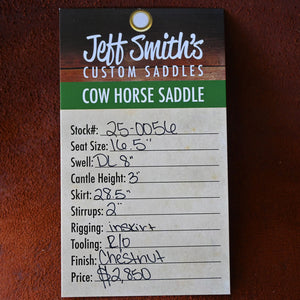 Jeff Smith's
CUSTOM SADDLES
COW HORSE SADDLE
Stock#: 25-0056
Seat Size: 16.5"
Swell: DL 8"
Cantle Height: 3"
Skirt: 28.5"
Stirrups: 2"
Rigging: inskirt
Tooling: R/O
Finish: Chestnut
Price: $2,850